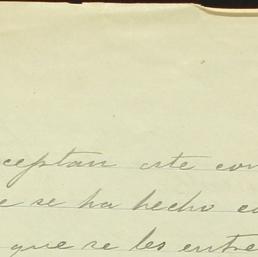 ceptan este con
e se ha hecho co
que se les entre